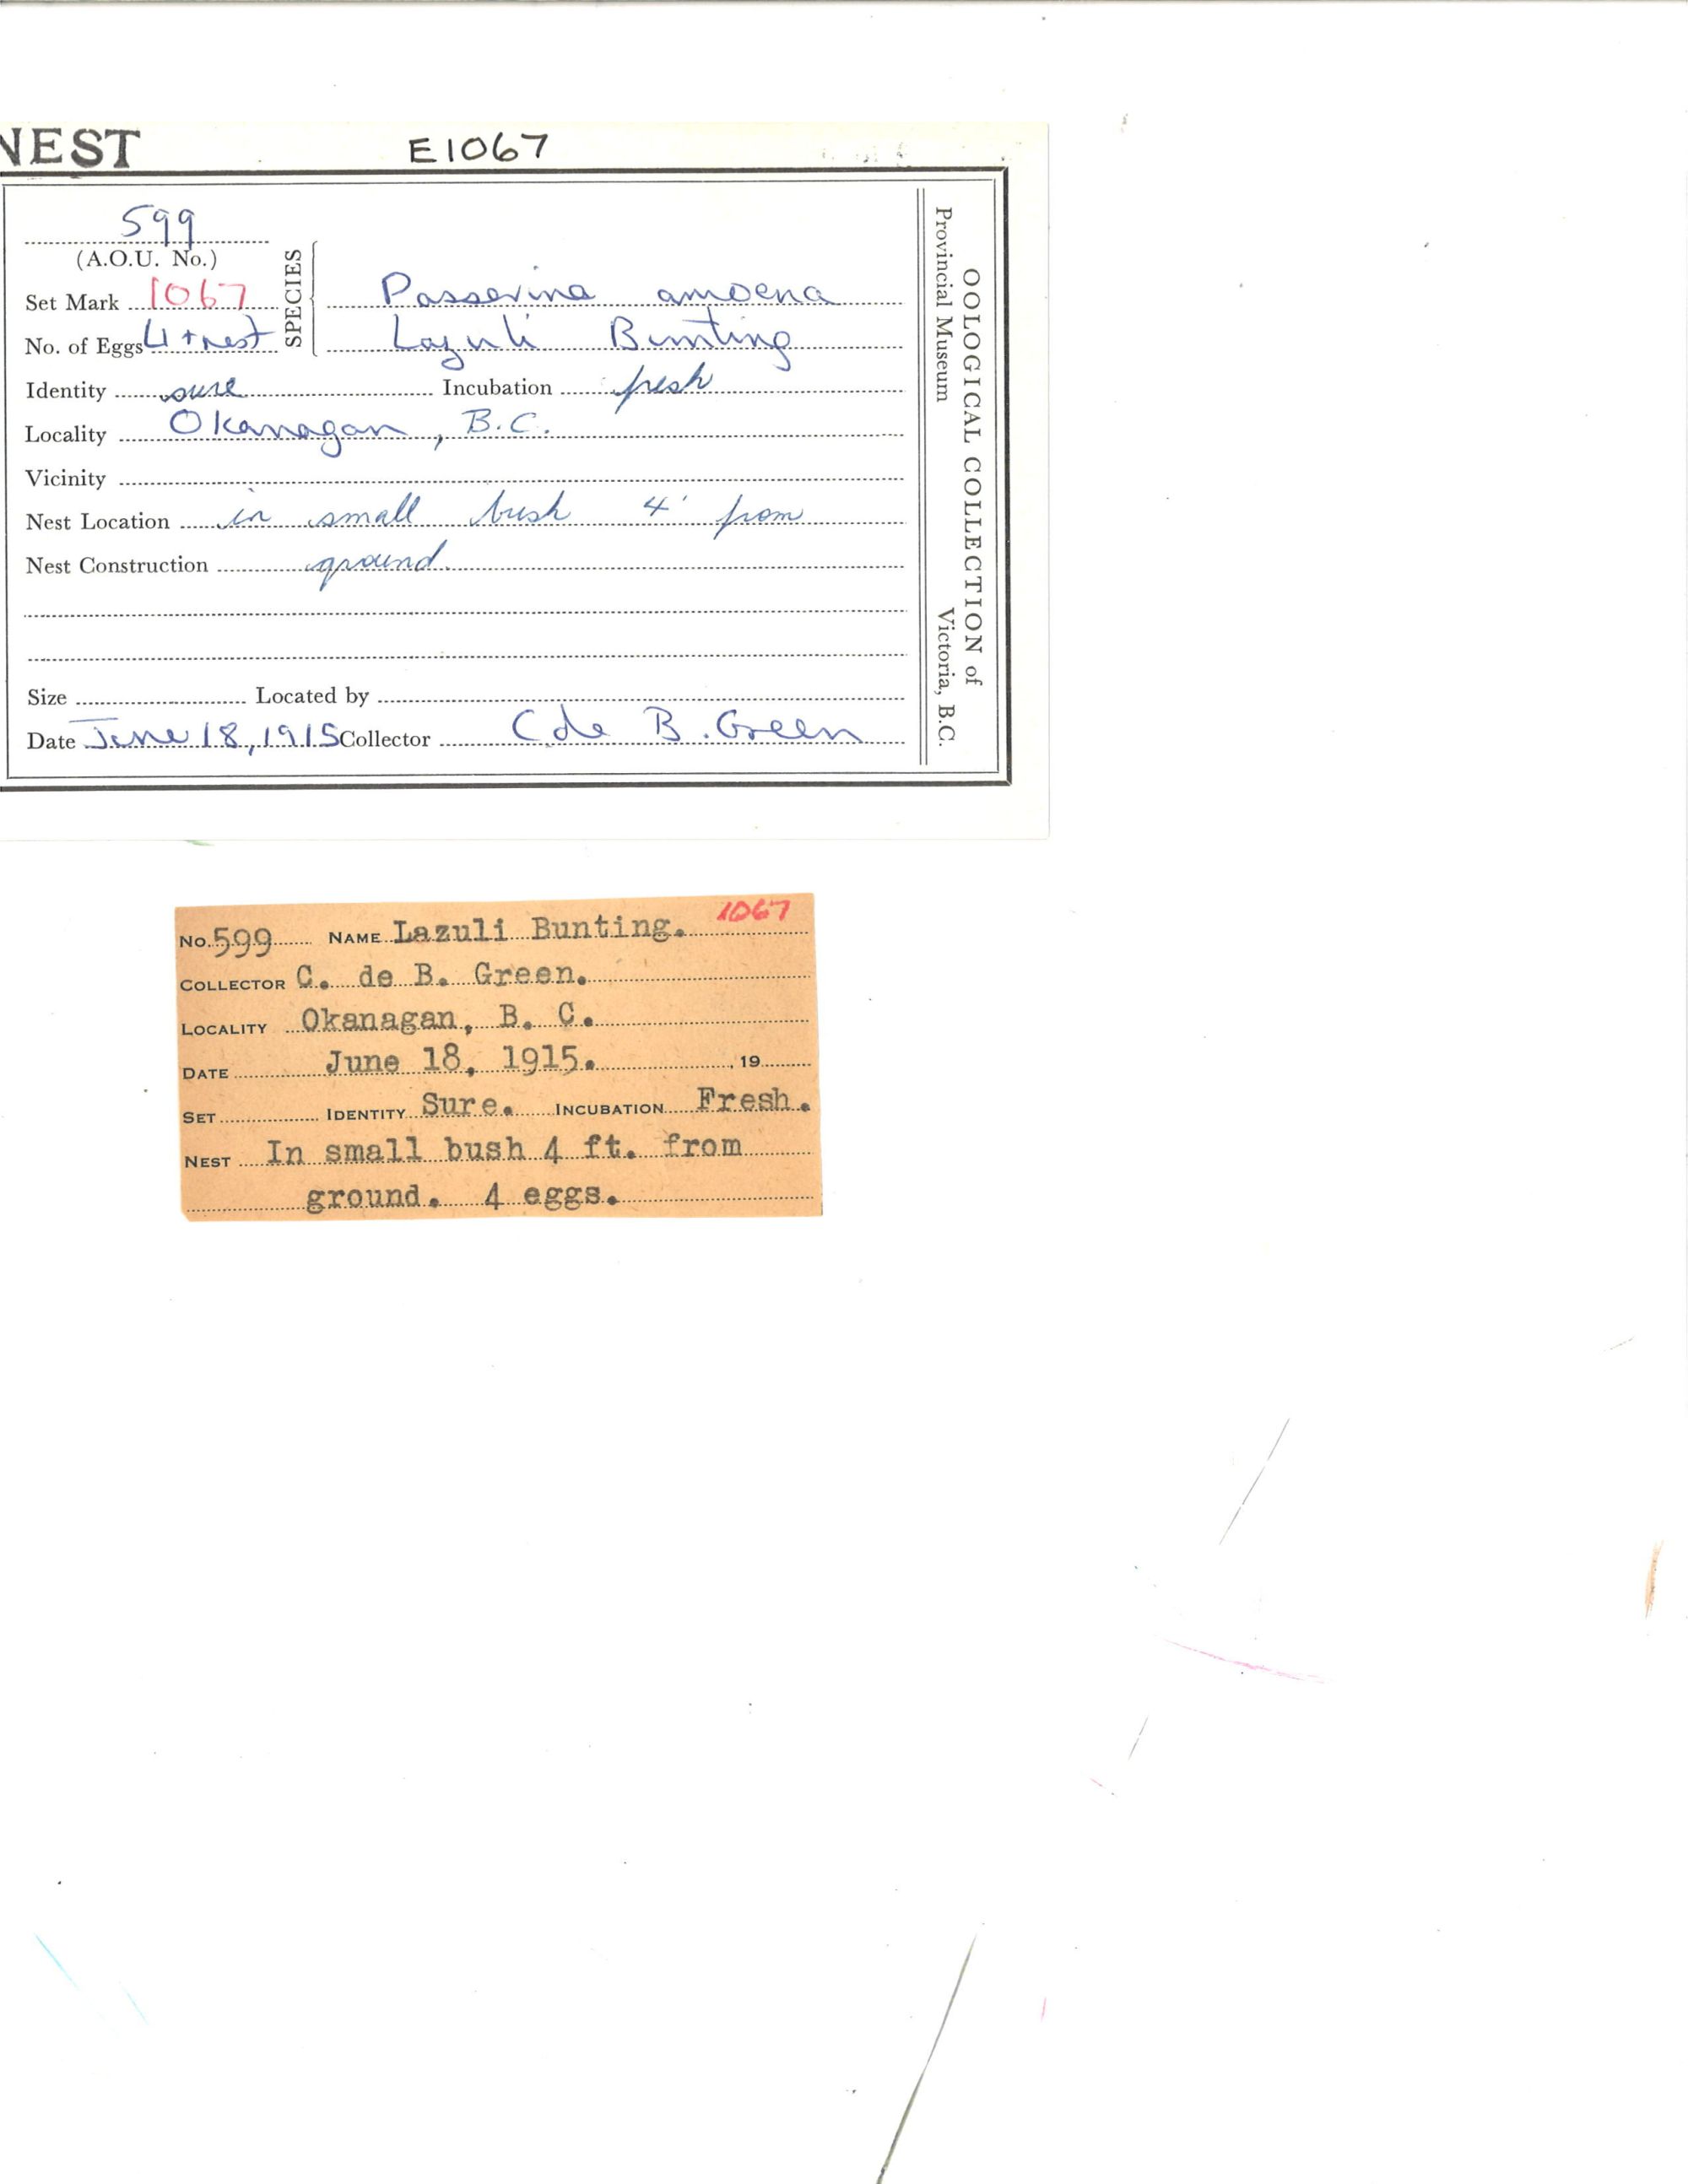 NEST E1067
599
(A.O.U. No.)
SPECIES
Set Mark 1067 Passerina amoena
No. of Eggs 4 + nest Lazuli Bunting
Identity sure Incubation fresh
Locality Okanagan, B.C.
Vicinity
Nest Location in small bush 4' from
Nest Construction ground.
Size Located by
Date June 18, 1915 Collector C de B. Green
OOLOGICAL COLLECTION of
Provincial Museum Victoria, B.C.
1067
No. 599 NAME Lazuli Bunting.
COLLECTOR C. de B. Green.
LOCALITY Okanagan, B. C.
DATE June 18, 1915. , 19
SET IDENTITY Sure. INCUBATION Fresh.
NEST In small bush 4 ft. from
ground. 4 eggs.